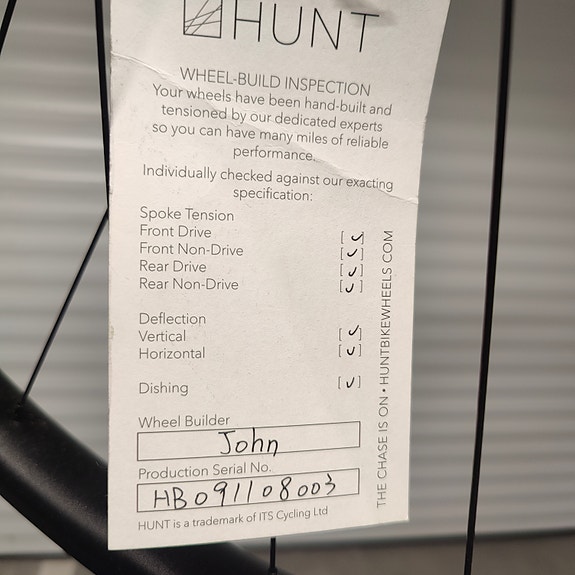 HUNT
WHEEL-BUILD INSPECTION
Your wheels have been hand-built and
tensioned by our dedicated experts
so you can have many miles of reliable
performance.
Individually checked against our exacting
specification:
Spoke Tension
Front Drive [✓]
Front Non-Drive [✓]
Rear Drive [✓]
Rear Non-Drive [✓]
Deflection
Vertical [✓]
Horizontal [✓]
Dishing [✓]
Wheel Builder
John
Production Serial No.
HB091108003
HUNT is a trademark of ITS Cycling Ltd
THE CHASE IS ON • HUNTBIKEWHEELS.COM